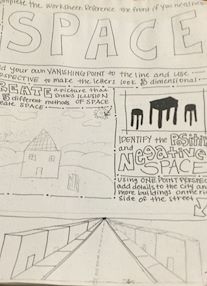 complete the worksheet. Reference the front if you need
SPACE
Add your own VANISHING POINT to the line and use
PERSPECTIVE to make the letters look 3 dimensional
CREATE a picture that
shows ILLUSION
different methods of SPACE
create SPACE
IDENTIFY the POSITIVE
and
NEGATIVE
SPACE
Using ONE POINT PERSPE
add details to the city and
more buildings on the ri
side of the street